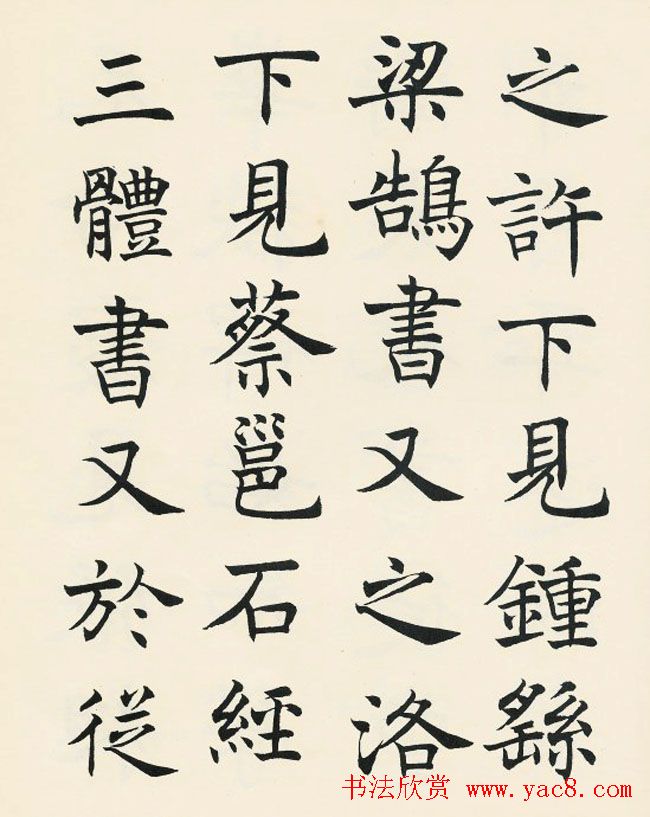 之許下見鍾繇
梁鵠書又之洛
下見蔡邕石經
三體書又於從
书法欣赏 www.yac8.com